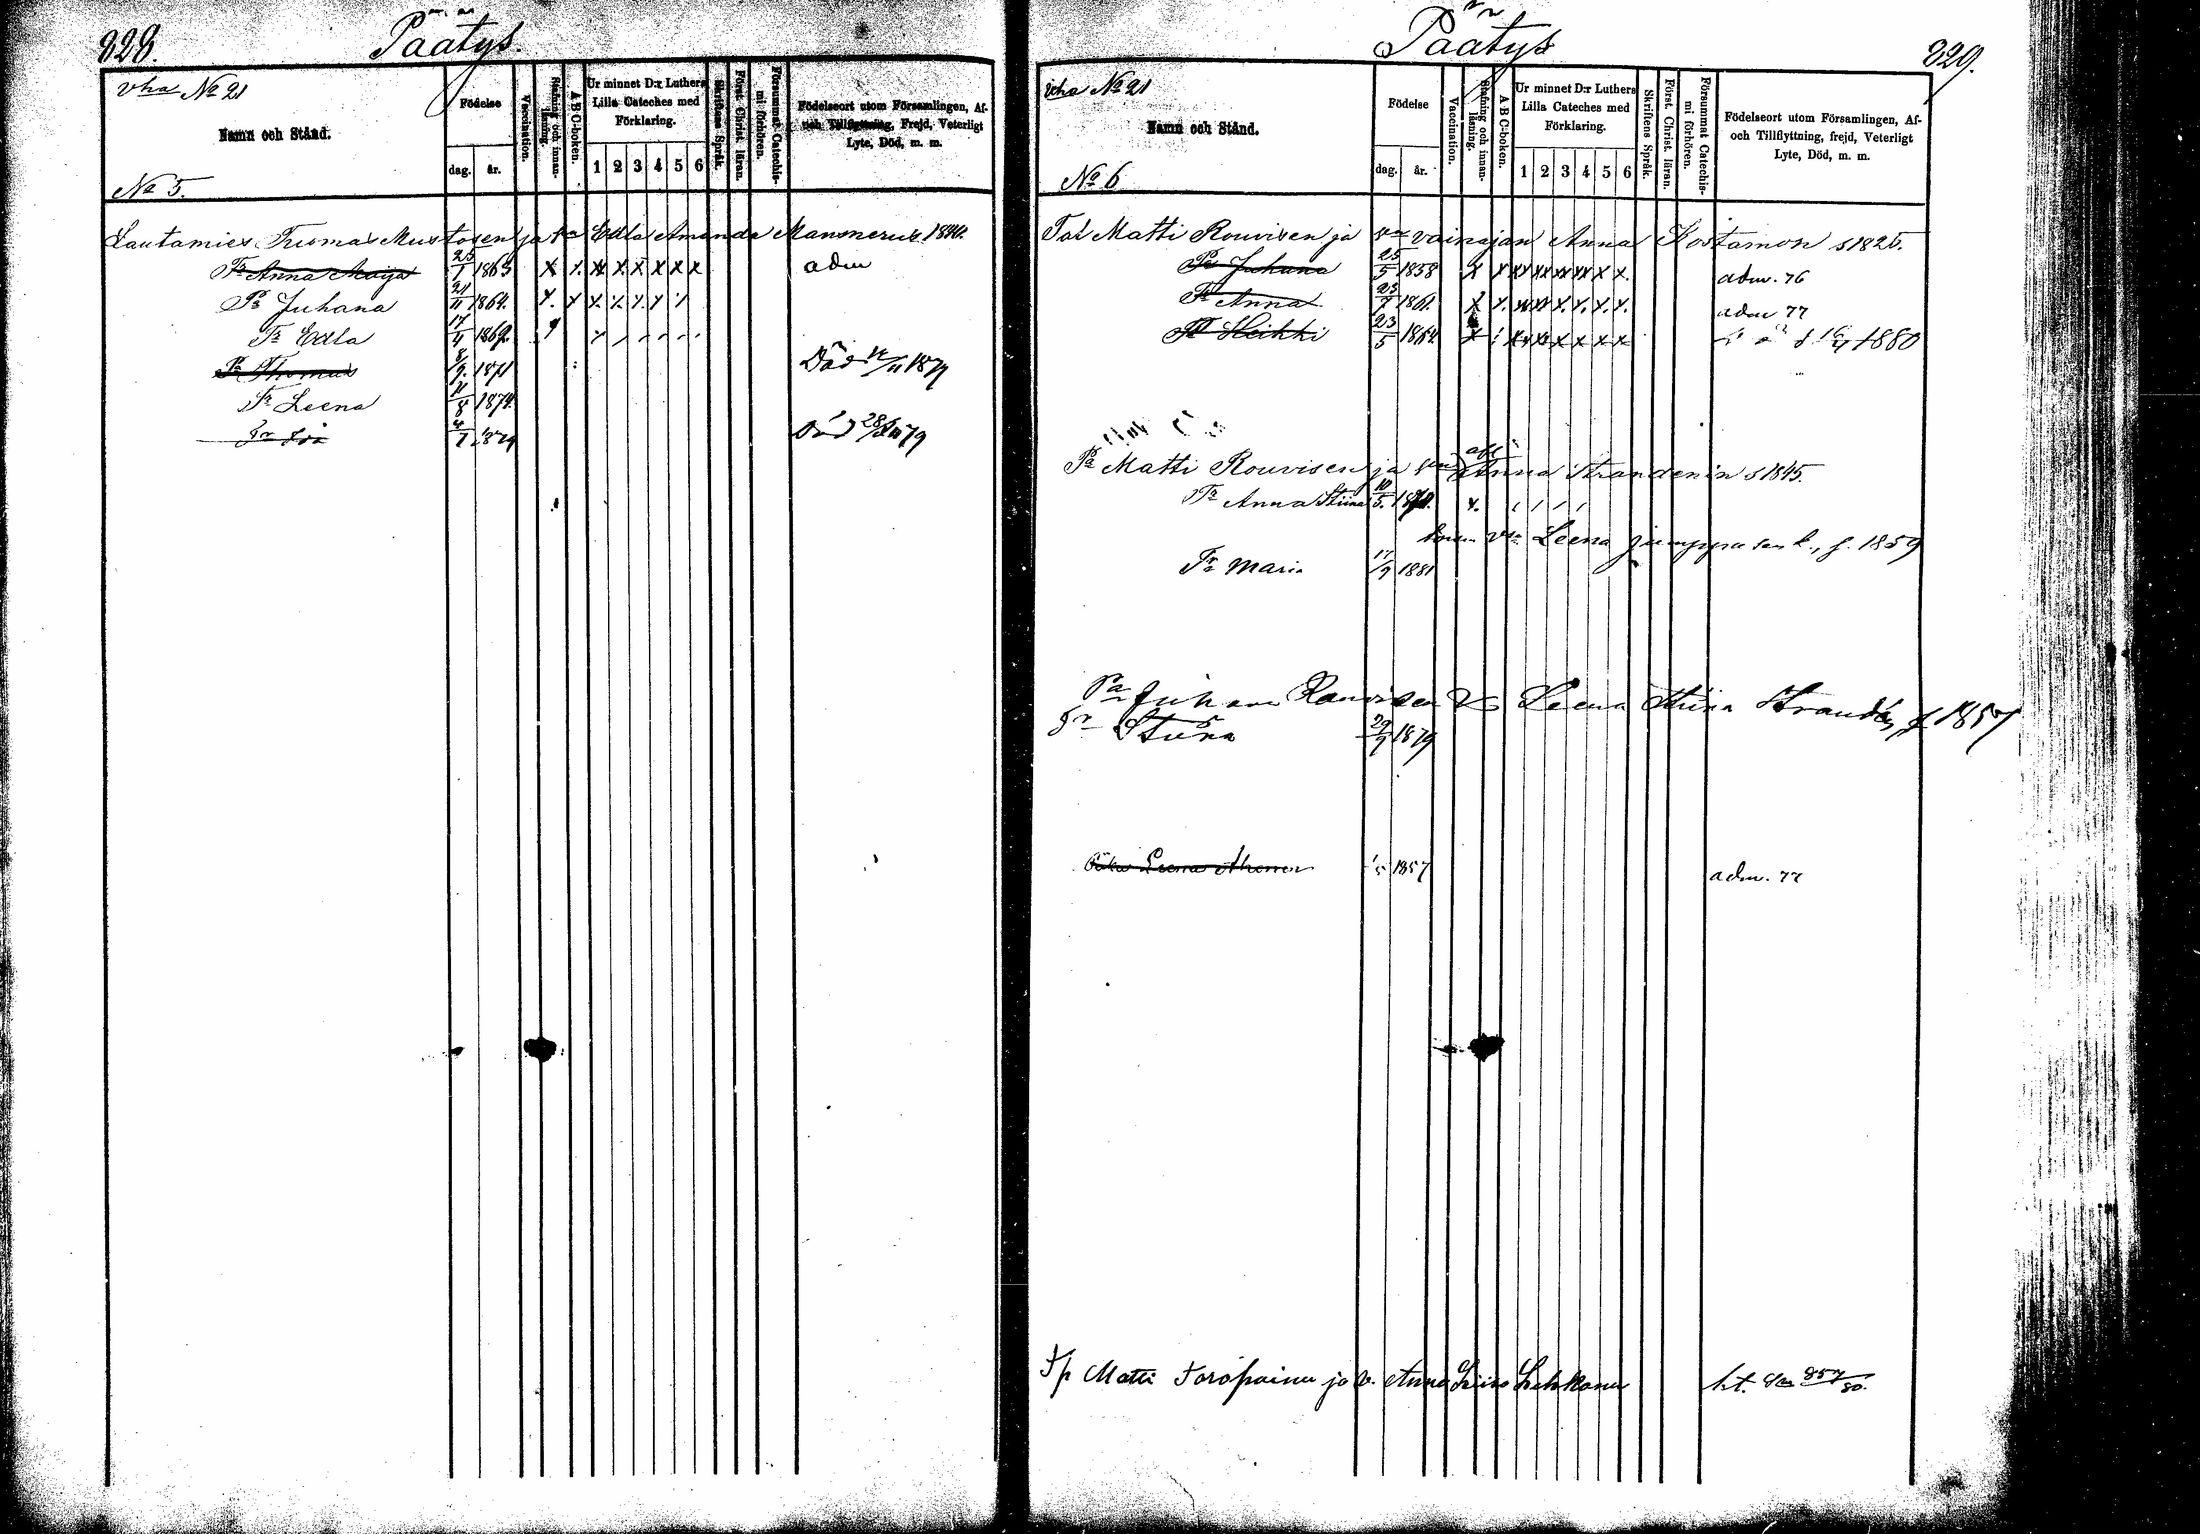 828.
Päätys.
vha No 21
Namn och Stånd.
No 5.
Födelse
dag.
år.
Vaccination.
Stafning och innanläsning.
A B C-boken.
Ur minnet D:r Luthers
Lilla Cateches med
Förklaring.
1 2 3 4 5 6
Skriftens Språk.
Först. Christ. läran.
Försummat Catechismi förhören.
Födelseort utom Församlingen, Af-
och Tillflyttning, Frejd, Veterligt
Lyte, Död, m. m.
Lautamies Tuomas Mustosen ja Edla Amanda Mansnerus
Tr Anna Maija 25/1 1863 x x x x x x x adm
Pa Juhana 21/11 1864. x x x x x x
Tr Edla 17/4 1869
Pa Thomas 8/9. 1871 Död 1879
Tr Leena 8 1874
4/7 1879 Död 28/ 79
Päätys
829.
vha No 21
Namn och Stånd.
No 6
Födelse
dag.
år.
Vaccination.
Stafning och innanläsning.
A B C-boken.
Ur minnet D:r Luthers
Lilla Cateches med
Förklaring.
1 2 3 4 5 6
Skriftens Språk.
Först. Christ. läran.
Försummat Catechismi förhören.
Födelseort utom Församlingen, Af-
och Tillflyttning, frejd, Veterligt
Lyte, Död, m. m.
Tal Matti Rouvisen ja vainajan Anna Kostamon s 1825.
Pa Juhana 25/5 1858 x x x x x x x x adm. 76
Tr Anna 25/7 1861. x x. x x x. x. x. x. adm 77
Pa Heikki 23/5 1864 x x x x x x x 1880
Pa Matti Rouvisen ja Anna Strandenin s 1845.
Tr Anna Stiina 10/5. x.
Leena f. 1859
Tr Maria 17/9 1881
Pa Juhana Rouvisen Leena Stiina Strandén f 1857
Stiina 29/9 1879
Leena 5 1857 adm. 77
Matti Toropainen ja v. Anna Liisa 857/80.